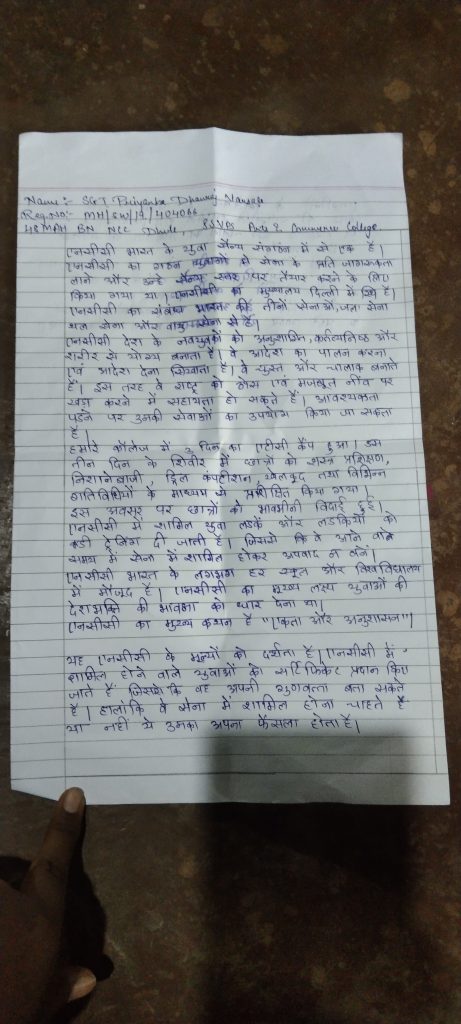 Name:- SGT Priyanka Dhanraj
Reg.No:- MH/SW/17/404066
48 MAH BN NCC Dhule SSVPS Arts & Commerce College.
एनसीसी भारत के युवा सैन्य संगठन में से एक है।
एनसीसी का गठन युवाओं में सेना के प्रति जागरूकता
लाने और उन्हे सैन्य स्तर पर तैयार करने के लिए
किया गया था। एनसीसी का मुख्यालय दिल्ली में है।
एनसीसी का संबंध भारत की तीनों सेनाओं,जल सेना
थल सेना और वायु सेना से है।
एनसीसी देश के नवयुवकों को अनुशासित,कर्तव्यनिष्ठ और
शरीर से योग्य बनाता है। वे आदेश का पालन करना
एवं आदेश देना सिखाता है। वे चुस्त और चालाक बनाते
है। इस तरह वे राष्ट्र को ठोस एवं मजबूत नींव पर
खडा करने में सहायता हो सकते है। आवश्यकता
पडने पर उनकी सेवाओं का उपयोग किया जा सकता
है
हमारे कॉलेज में 3 दिन का एटीसी कैंप हुआ। इस
तीन दिन के शिवीर में छात्रों को शस्त्र प्रशिक्षण,
निशानेबाजी, ड्रिल कंपटीशन खेलकूद तथा विभिन्न
गतिविधियों के माध्यम से प्रशिक्षित किया गया।
इस अवसर पर छात्रों को भावभीनी विदाई हुई।
एनसीसी में शामिल युवा लडके और लडकियों को
कडी ट्रेनिंग दी जाती है। जिससे कि वे आने वाले
समय में सेना में शामिल होकर अपवाद न बने।
एनसीसी भारत के लगभग हर स्कूल और विश्वविद्यालय
में मौजूद है। एनसीसी का मुख्य लक्ष्य युवाओं की
देशभक्ति की भावना को धार देना था।
एनसीसी का मुख्य कथन है "एकता और अनुशासन"।
यह एनसीसी के मूल्यों को दर्शाता है। एनसीसी में
शामिल होने वाले युवाओं को सर्टिफिकेट प्रदान किए
जाते हैं जिससे कि वह अपनी गुणवत्ता बता सकते
है। हालांकि वे सेना में शामिल होना चाहते हैं
या नहीं ये उनका अपना फैसला होता है।